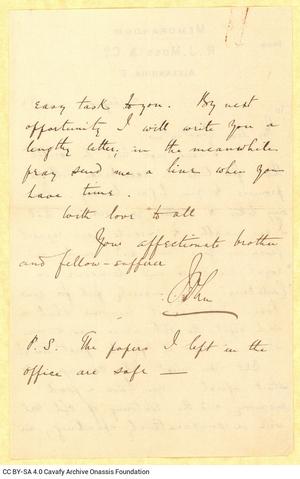 easy task to you. By next
opportunity I will write you a
lengthy letter, in the meanwhile
pray send me a line when you
have time.
With love to all
Your affectionate brother
and fellow-sufferer
John
P.S. The papers I left in the
office are safe —
CC BY-SA 4.0 Cavafy Archive Onassis Foundation